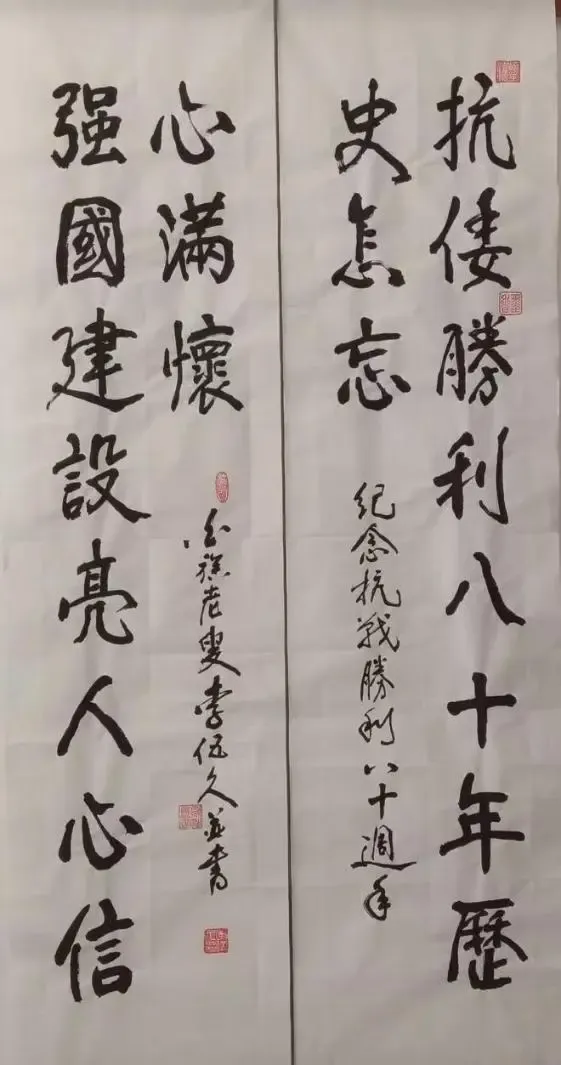 抗倭勝利八十年歷
史怎忘
紀念抗戰勝利八十週年
强國建設亮人心信
心滿懷
老叟李伍久並書